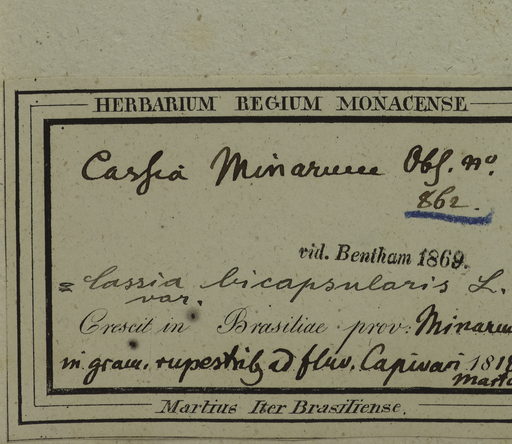 HERBARIUM REGIUM MONACENSE
Cassia Minarum Obs. no.
862.
vid. Bentham 1869.
= Cassia bicapsularis L.
var.
Crescit in Brasiliae prov: Minarum
in gram. rupestrib ad fluv. Capivari 1818
Martius Iter Brasiliense.